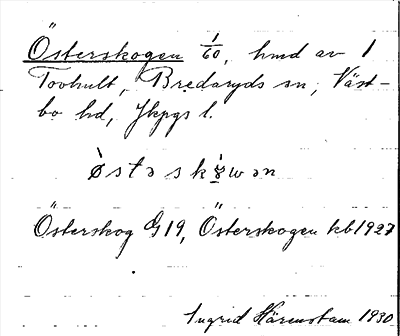 Österskogen 1/60, hmd av 1
Tovhult, Bredaryds sn, Väst-
bo hd, Jkpgs l.
østə sk wən
Österskog G19, Österskogen kb 1927
Ingrid Härenstam 1930